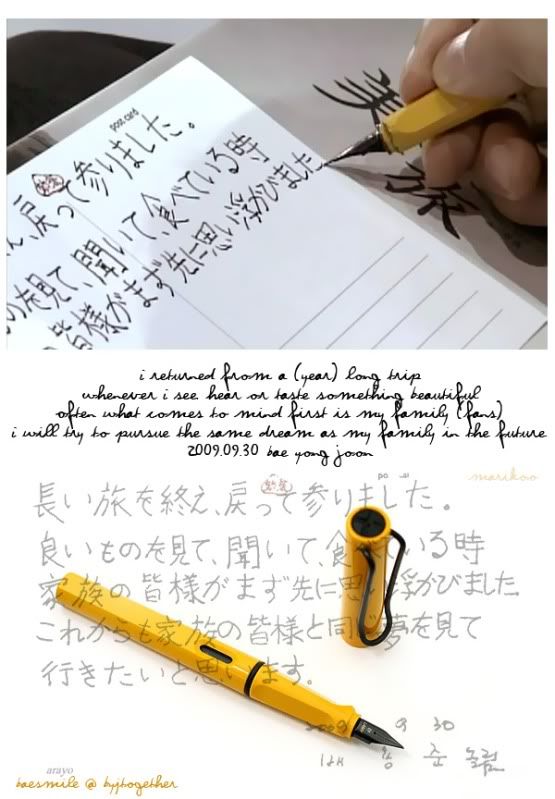 post card
戻って参りました。
ものを見て、聞いて、食べている時
皆様がまず先に思い浮かびました
美
旅
i returned from a (year) long trip
whenever i see hear or taste something beautiful
often what comes to mind first is my family (fans)
i will try to pursue the same dream as my family in the future
2009.09.30 bae yong joon
marikoo
長い旅を終え、戻って参りました。
良いものを見て、聞いて、食べている時
家族の皆様がまず先に思い浮かびました
これからも家族の皆様と同じ夢を見て
行きたいと思います。
2009 9 30
배 용 준
arayo
baesmile @ byjtogether